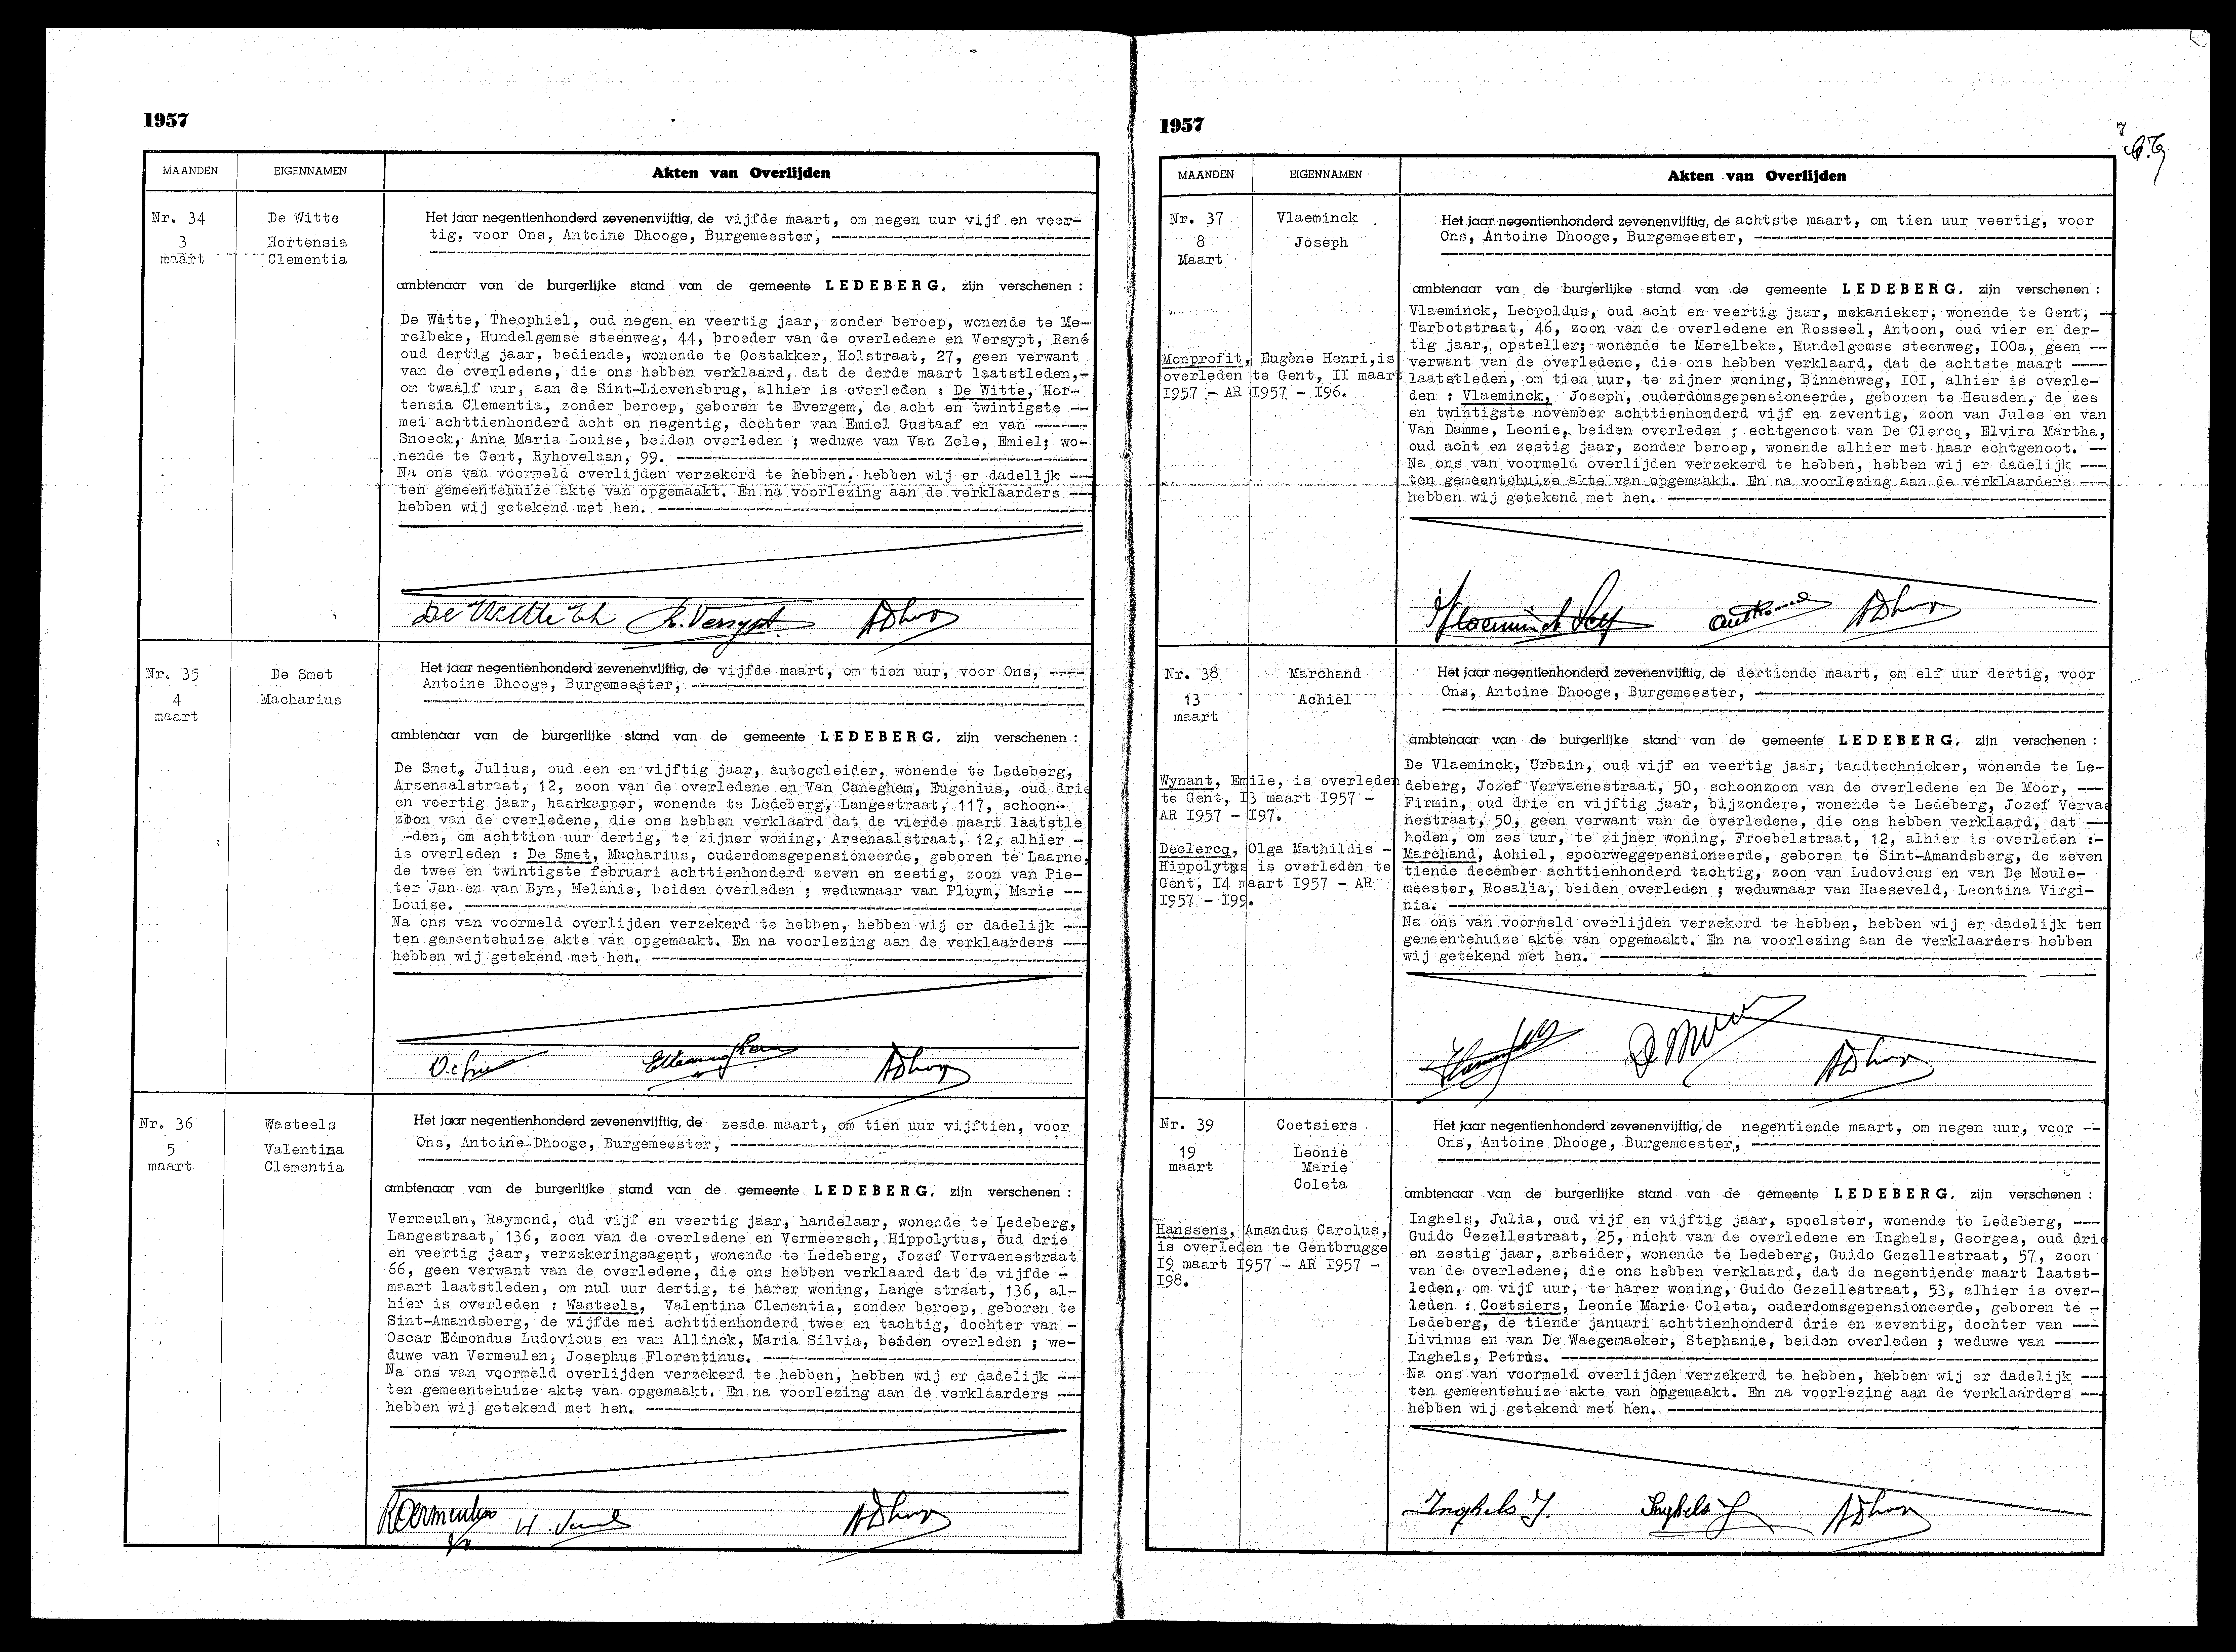 1957
MAANDEN EIGENNAMEN Akten van Overlijden
Nr. 34
3
maart
De Witte
Hortensia
Clementia
Het jaar negentienhonderd zevenenvijftig, de vijfde maart, om negen uur vijf en veer-
tig, voor Ons, Antoine Dhooge, Burgemeester,
ambtenaar van de burgerlijke stand van de gemeente LEDEBERG, zijn verschenen :
De Witte, Theophiel, oud negen en veertig jaar, zonder beroep, wonende te Me-
relbeke, Hundelgemse steenweg, 44, broeder van de overledene en Versypt, René
oud dertig jaar, bediende, wonende te Oostakker, Holstraat, 27, geen verwant
van de overledene, die ons hebben verklaard, dat de derde maart laatstleden,-
om twaalf uur, aan de Sint-Lievensbrug, alhier is overleden : De Witte, Hor-
tensia Clementia, zonder beroep, geboren te Evergem, de acht en twintigste --
mei achttienhonderd acht en negentig, dochter van Emiel Gustaaf en van ------
Snoeck, Anna Maria Louise, beiden overleden ; weduwe van Van Zele, Emiel; wo-
nende te Gent, Ryhovelaan, 99.
Na ons van voormeld overlijden verzekerd te hebben, hebben wij er dadelijk ---
ten gemeentehuize akte van opgemaakt. En na voorlezing aan de verklaarders ---
hebben wij getekend met hen.
De Witte Th R. Versypt ADhooge
Nr. 35
4
maart
De Smet
Macharius
Het jaar negentienhonderd zevenenvijftig, de vijfde maart, om tien uur, voor Ons, ----
Antoine Dhooge, Burgemeester,
ambtenaar van de burgerlijke stand van de gemeente LEDEBERG, zijn verschenen :
De Smet, Julius, oud een en vijftig jaar, autogeleider, wonende te Ledeberg,
Arsenaalstraat, 12, zoon van de overledene en Van Caneghem, Eugenius, oud drie
en veertig jaar, haarkapper, wonende te Ledeberg, Langestraat, 117, schoon-
zoon van de overledene, die ons hebben verklaard dat de vierde maart laatstle
-den, om achttien uur dertig, te zijner woning, Arsenaalstraat, 12, alhier -
is overleden : De Smet, Macharius, ouderdomsgepensioneerde, geboren te Laarne,
de twee en twintigste februari achttienhonderd zeven en zestig, zoon van Pie-
ter Jan en van Byn, Melanie, beiden overleden ; weduwnaar van Pluym, Marie --
Louise.
Na ons van voormeld overlijden verzekerd te hebben, hebben wij er dadelijk ---
ten gemeentehuize akte van opgemaakt. En na voorlezing aan de verklaarders ---
hebben wij getekend met hen.
ADhooge
Nr. 36
5
maart
Wasteels
Valentina
Clementia
Het jaar negentienhonderd zevenenvijftig, de zesde maart, om tien uur vijftien, voor
Ons, Antoine Dhooge, Burgemeester,
ambtenaar van de burgerlijke stand van de gemeente LEDEBERG, zijn verschenen :
Vermeulen, Raymond, oud vijf en veertig jaar, handelaar, wonende te Ledeberg,
Langestraat, 136, zoon van de overledene en Vermeersch, Hippolytus, oud drie
en veertig jaar, verzekeringsagent, wonende te Ledeberg, Jozef Vervaenestraat
66, geen verwant van de overledene, die ons hebben verklaard dat de vijfde -
maart laatstleden, om nul uur dertig, te harer woning, Lange straat, 136, al-
hier is overleden : Wasteels, Valentina Clementia, zonder beroep, geboren te
Sint-Amandsberg, de vijfde mei achttienhonderd twee en tachtig, dochter van -
Oscar Edmondus Ludovicus en van Allinck, Maria Silvia, beiden overleden ; we-
duwe van Vermeulen, Josephus Florentinus.
Na ons van voormeld overlijden verzekerd te hebben, hebben wij er dadelijk ---
ten gemeentehuize akte van opgemaakt. En na voorlezing aan de verklaarders ---
hebben wij getekend met hen.
RVermeulen ADhooge
1957
MAANDEN EIGENNAMEN Akten van Overlijden
Nr. 37
8
Maart
Vlaeminck
Joseph
Monprofit, Eugène Henri, is
overleden te Gent, II maart
I957 - AR I957 - I96.
Het jaar negentienhonderd zevenenvijftig, de achtste maart, om tien uur veertig, voor
Ons, Antoine Dhooge, Burgemeester,
ambtenaar van de burgerlijke stand van de gemeente LEDEBERG, zijn verschenen :
Vlaeminck, Leopoldus, oud acht en veertig jaar, mekanieker, wonende te Gent, --
Tarbotstraat, 46, zoon van de overledene en Rosseel, Antoon, oud vier en der-
tig jaar, opsteller; wonende te Merelbeke, Hundelgemse steenweg, I00a, geen --
verwant van de overledene, die ons hebben verklaard, dat de achtste maart ----
laatstleden, om tien uur, te zijner woning, Binnenweg, I0I, alhier is overle-
den : Vlaeminck, Joseph, ouderdomsgepensioneerde, geboren te Heusden, de zes
en twintigste november achttienhonderd vijf en zeventig, zoon van Jules en van
Van Damme, Leonie, beiden overleden ; echtgenoot van De Clercq, Elvira Martha,
oud acht en zestig jaar, zonder beroep, wonende alhier met haar echtgenoot. --
Na ons van voormeld overlijden verzekerd te hebben, hebben wij er dadelijk ---
ten gemeentehuize akte van opgemaakt. En na voorlezing aan de verklaarders ---
hebben wij getekend met hen.
Vlaeminck ADhooge
Nr. 38
13
maart
Marchand
Achiel
Wynant, Emile, is overleden
te Gent, I3 maart I957 -
AR I957 - I97.
Declercq, Olga Mathildis -
Hippolytus is overleden te
Gent, I4 maart I957 - AR
I957 - I99.
Het jaar negentienhonderd zevenenvijftig, de dertiende maart, om elf uur dertig, voor
Ons, Antoine Dhooge, Burgemeester,
ambtenaar van de burgerlijke stand van de gemeente LEDEBERG, zijn verschenen :
De Vlaeminck, Urbain, oud vijf en veertig jaar, tandtechnieker, wonende te Le-
deberg, Jozef Vervaenestraat, 50, schoonzoon van de overledene en De Moor, ---
Firmin, oud drie en vijftig jaar, bijzondere, wonende te Ledeberg, Jozef Vervae
nestraat, 50, geen verwant van de overledene, die ons hebben verklaard, dat ---
heden, om zes uur, te zijner woning, Froebelstraat, 12, alhier is overleden :-
Marchand, Achiel, spoorweggepensioneerde, geboren te Sint-Amandsberg, de zeven
tiende december achttienhonderd tachtig, zoon van Ludovicus en van De Meule-
meester, Rosalia, beiden overleden ; weduwnaar van Haeseveld, Leontina Virgi-
nia.
Na ons van voormeld overlijden verzekerd te hebben, hebben wij er dadelijk ten
gemeentehuize akte van opgemaakt. En na voorlezing aan de verklaarders hebben
wij getekend met hen.
ADhooge
Nr. 39
19
maart
Coetsiers
Leonie
Marie
Coleta
Hanssens, Amandus Carolus,
is overleden te Gentbrugge
I9 maart I957 - AR I957 -
I98.
Het jaar negentienhonderd zevenenvijftig, de negentiende maart, om negen uur, voor --
Ons, Antoine Dhooge, Burgemeester,
ambtenaar van de burgerlijke stand van de gemeente LEDEBERG, zijn verschenen :
Inghels, Julia, oud vijf en vijftig jaar, spoelster, wonende te Ledeberg, ---
Guido Gezellestraat, 25, nicht van de overledene en Inghels, Georges, oud drie
en zestig jaar, arbeider, wonende te Ledeberg, Guido Gezellestraat, 57, zoon
van de overledene, die ons hebben verklaard, dat de negentiende maart laatst-
leden, om vijf uur, te harer woning, Guido Gezellestraat, 53, alhier is over-
leden : Coetsiers, Leonie Marie Coleta, ouderdomsgepensioneerde, geboren te -
Ledeberg, de tiende januari achttienhonderd drie en zeventig, dochter van ---
Livinus en van De Waegemaeker, Stephanie, beiden overleden ; weduwe van -----
Inghels, Petrus.
Na ons van voormeld overlijden verzekerd te hebben, hebben wij er dadelijk ---
ten gemeentehuize akte van opgemaakt. En na voorlezing aan de verklaarders ---
hebben wij getekend met hen.
Inghels J. Inghels G ADhooge